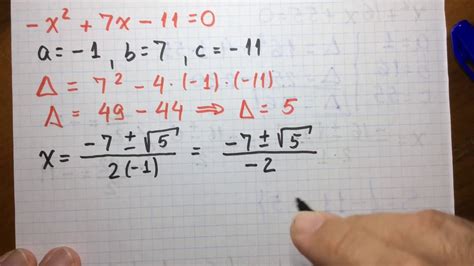 -x² + 7x - 11 = 0
a = -1 , b = 7 , c = -11
Δ = 7² - 4 · (-1) · (-11)
Δ = 49 - 44 ⇒ Δ = 5
x = (-7 ± √5) / 2(-1) = (-7 ± √5) / -2